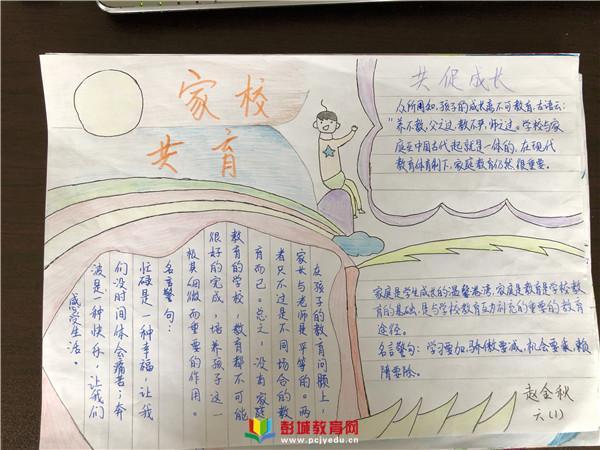 家校
共育
共促成长
众所周知,孩子的成长离不可教育,古语云:
"养不教,父之过,教不严,师之过。学校与家
庭在中国古代起就是一体的,在现代
教育体育制下,家庭教育仍然很重要。
家庭是学生成长的温馨港湾,家庭是教育是学校教
育的基础,是与学校教育互为补充的重要的教育
途径。
名言警句:学习要加,骄傲要减,机会要乘,懒
隋要除。
赵金秋
六(1)
在孩子的教育问题上,
家长与老师是平等的。两
者只不过是不同场合的教
育而已。总之,没有家庭
教育的学校教育都不可能
很好的完成,培养孩子这一
极其细微而重要的作用。
名言警句:
忙碌是一种幸福,让我
们没时间体会痛苦;奔
波是一种快乐,让我们
感受生活。
彭城教育网
www.pcjyedu.cn